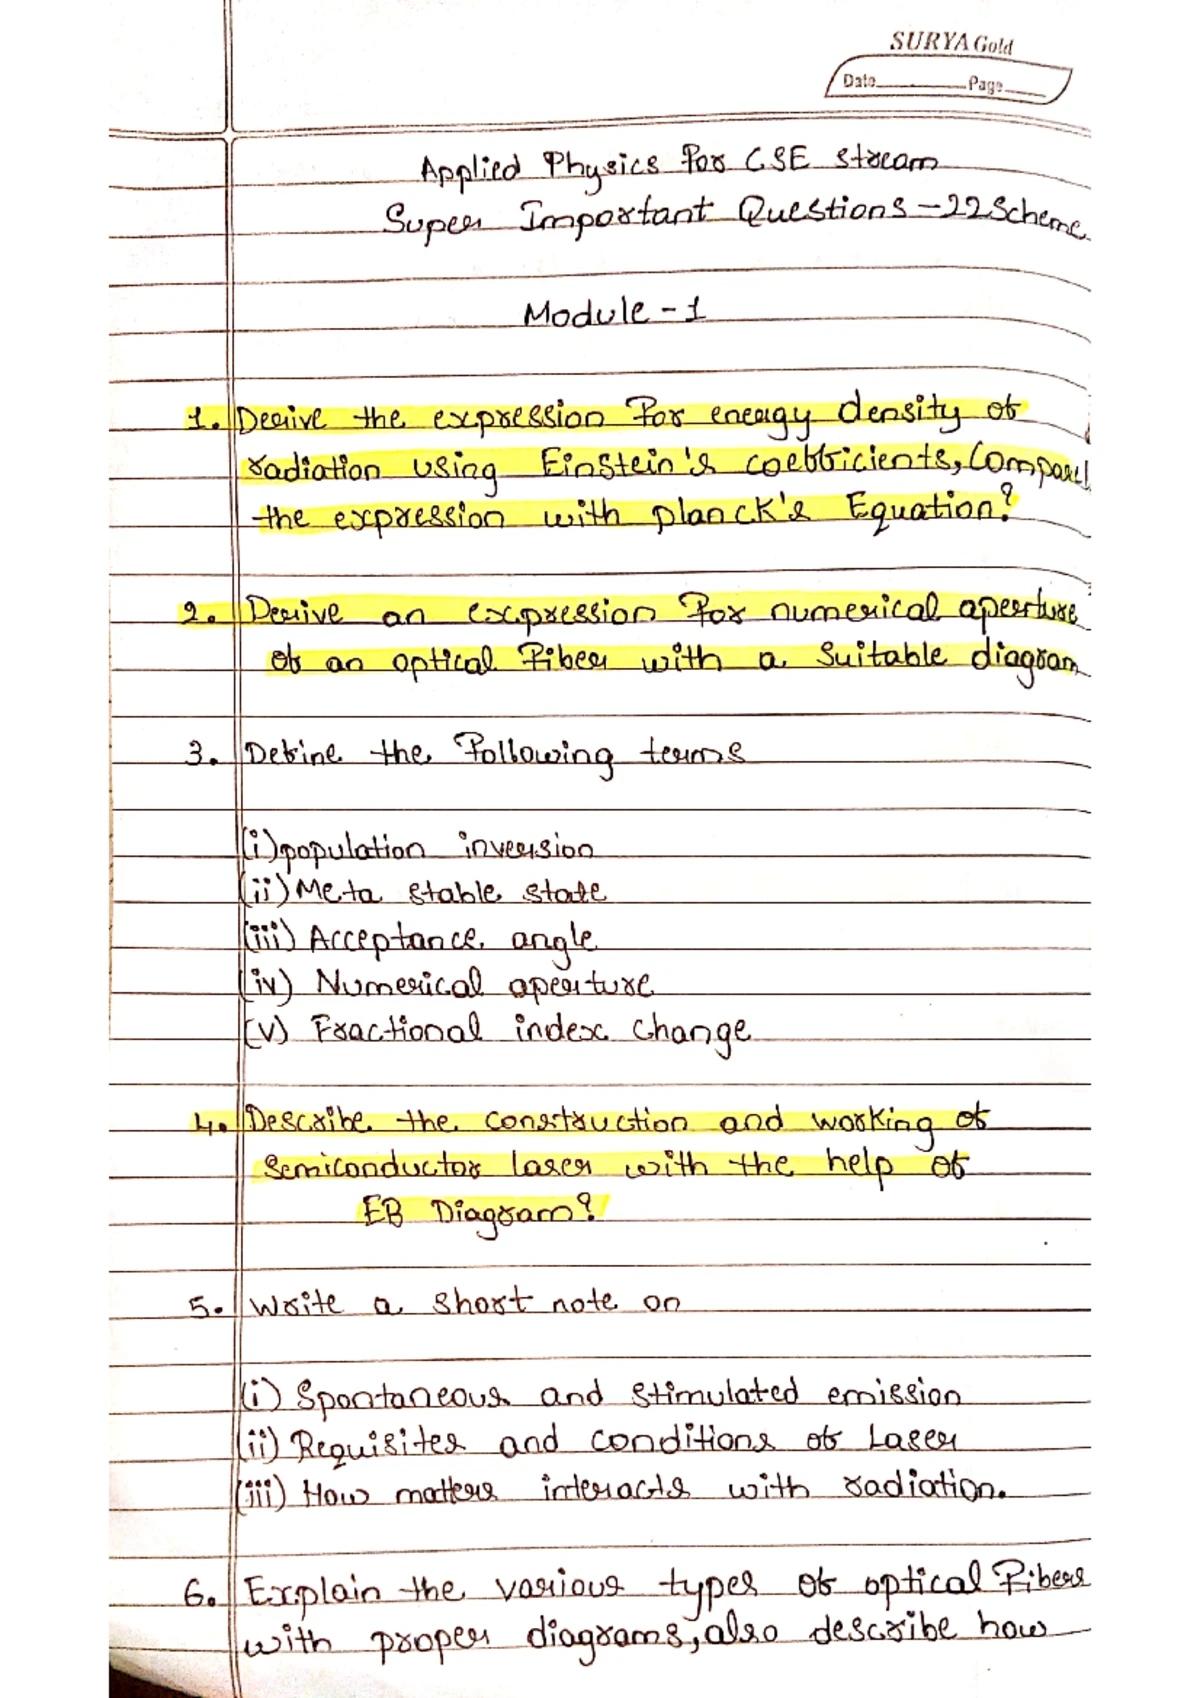 SURYA Gold
Date Page
Applied Physics For CSE stream
Super Important Questions - 22 Scheme
Module - 1
1. Derive the expression For energy density of
radiation using Einstein's coefficients, Compare
the expression with planck's Equation?
2. Derive an expression For numerical aperture
of an optical Fiber with a suitable diagram
3. Define the Following terms
(i) population inversion
(ii) Meta stable state
(iii) Acceptance angle
(iv) Numerical aperture
(v) Fractional index change
4. Describe the construction and working of
semiconductor laser with the help of
EB Diagram?
5. Write a short note on
(i) Spontaneous and stimulated emission
(ii) Requisites and conditions of Laser
(iii) How matters interacts with radiation.
6. Explain the various types of optical Fibers
with proper diagrams, also describe how